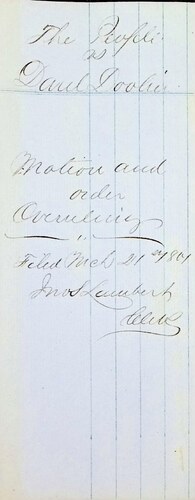 The People
vs
Danl Doolin
Motion and
order
Overruling
Filed Mch 21st 1861
Jnos Lambert
Clerk